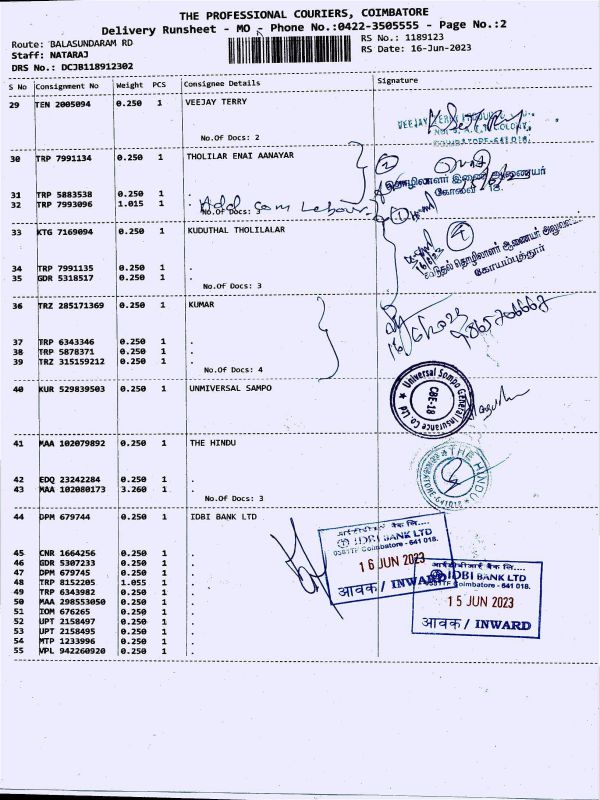 THE PROFESSIONAL COURIERS, COIMBATORE
Delivery Runsheet - MO - Phone No.:0422-3505555 - Page No.:2
Route: BALASUNDARAM RD
RS No.: 1189123
Staff: NATARAJ
RS Date: 16-Jun-2023
DRS No.: DCJB118912302
S No Consignment No Weight PCS Consignee Details Signature
29 TEN 2005094 0.250 1 VEEJAY TERRY
No.Of Docs: 2
30 TRP 7991134 0.250 1 THOLILAR ENAI AANAYAR
31 TRP 5883538 0.250 1 .
32 TRP 7993096 1.015 1 .
No.Of Docs: 3
Add com Labour
33 KTG 7169094 0.250 1 KUDUTHAL THOLILALAR
34 TRP 7991135 0.250 1 .
35 GDR 5318517 0.250 1 .
No.Of Docs: 3
36 TRZ 285171369 0.250 1 KUMAR
37 TRP 6343346 0.250 1 .
38 TRP 5878371 0.250 1 .
39 TRZ 315159212 0.250 1 .
No.Of Docs: 4
40 KUR 529839503 0.250 1 UNMIVERSAL SAMPO
41 MAA 102079892 0.250 1 THE HINDU
42 EDQ 23242284 0.250 1 .
43 MAA 102080173 3.260 1 .
No.Of Docs: 3
44 DPM 679744 0.250 1 IDBI BANK LTD
45 CNR 1664256 0.250 1 .
46 GDR 5307233 0.250 1 .
47 DPM 679745 0.250 1 .
48 TRP 8152205 1.055 1 .
49 TRP 6343982 0.250 1 .
50 MAA 298553050 0.250 1 .
51 IOM 676265 0.250 1 .
52 UPT 2158497 0.250 1 .
53 UPT 2158495 0.250 1 .
54 MTP 1233996 0.250 1 .
55 VPL 942260920 0.250 1 .
2
தொழிலாளர் இணை ஆணையர்
கோவை 18.
1
4
கூடுதல் தொழிலாளர் ஆணையர்
கோயம்புத்தூர்
16/6/23
16/6/2023
Universal Sompo General Insurance Co Ltd
CBE-18
THE HINDU
COIMBATORE-641018
आईडीबीआई बैंक लि....
IDBI BANK LTD
Coimbatore - 641 018.
16 JUN 2023
आवक / INWARD
आईडीबीआई बैंक लि....
IDBI BANK LTD
Coimbatore - 641 018.
15 JUN 2023
आवक / INWARD